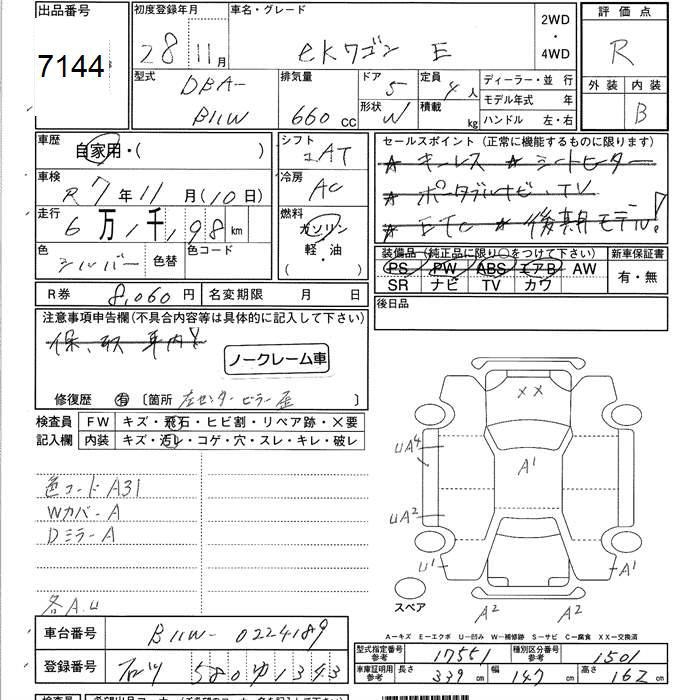 出品番号 7144
初度登録年月 28 11月
車名・グレード eKワゴン E
2WD・4WD
評価点 R
外装 内装 B
型式 DBA-B11W
排気量 660 cc
ドア 5 形状 W
定員 4人 積載 kg
ディーラー・並行
モデル年式 年
ハンドル 左・右
車歴 自家用・( )
車検 R7年11月(10日)
走行 6万1千,198km
色 シルバー 色替 色コード
シフト IAT
冷房 AC
燃料 ガソリン 軽・油 ( )
セールスポイント (正常に機能するものに限ります)
★ キーレス ★ シートヒーター
★ ポータブルナビ・TV
★ ETC ★ 後期モデル!
装備品 (純正品に限り○をつけて下さい) 新車保証書
PS PW ABS エアB AW 有・無
SR ナビ TV カワ
R券 8,060円 名変期限 月 日
後日品
注意事項申告欄(不具合内容等は具体的に記入して下さい)
保、取 車内!
ノークレーム車
修復歴 有 〔箇所 左センターピラー歪 〕
検査員記入欄 FW キズ・飛石・ヒビ割・リペア跡・×要
内装 キズ・汚レ・コゲ・穴・スレ・キレ・破レ
色コードA31
Wカバー A
Dミラー A
各A.U
XX
A1
UA4
UA2
U1
A1
A2
A2
スペア
A-キズ E-エクボ U-凹み W-補修跡 S-サビ C-腐食 XX-交換済
車台番号 B11W-0224189
登録番号 580 ゆ 1343
型式指定番号 参考 17551 種別区分番号 参考 1501
車庫証明用 参考 長さ 339cm 幅 147cm 高さ 162cm